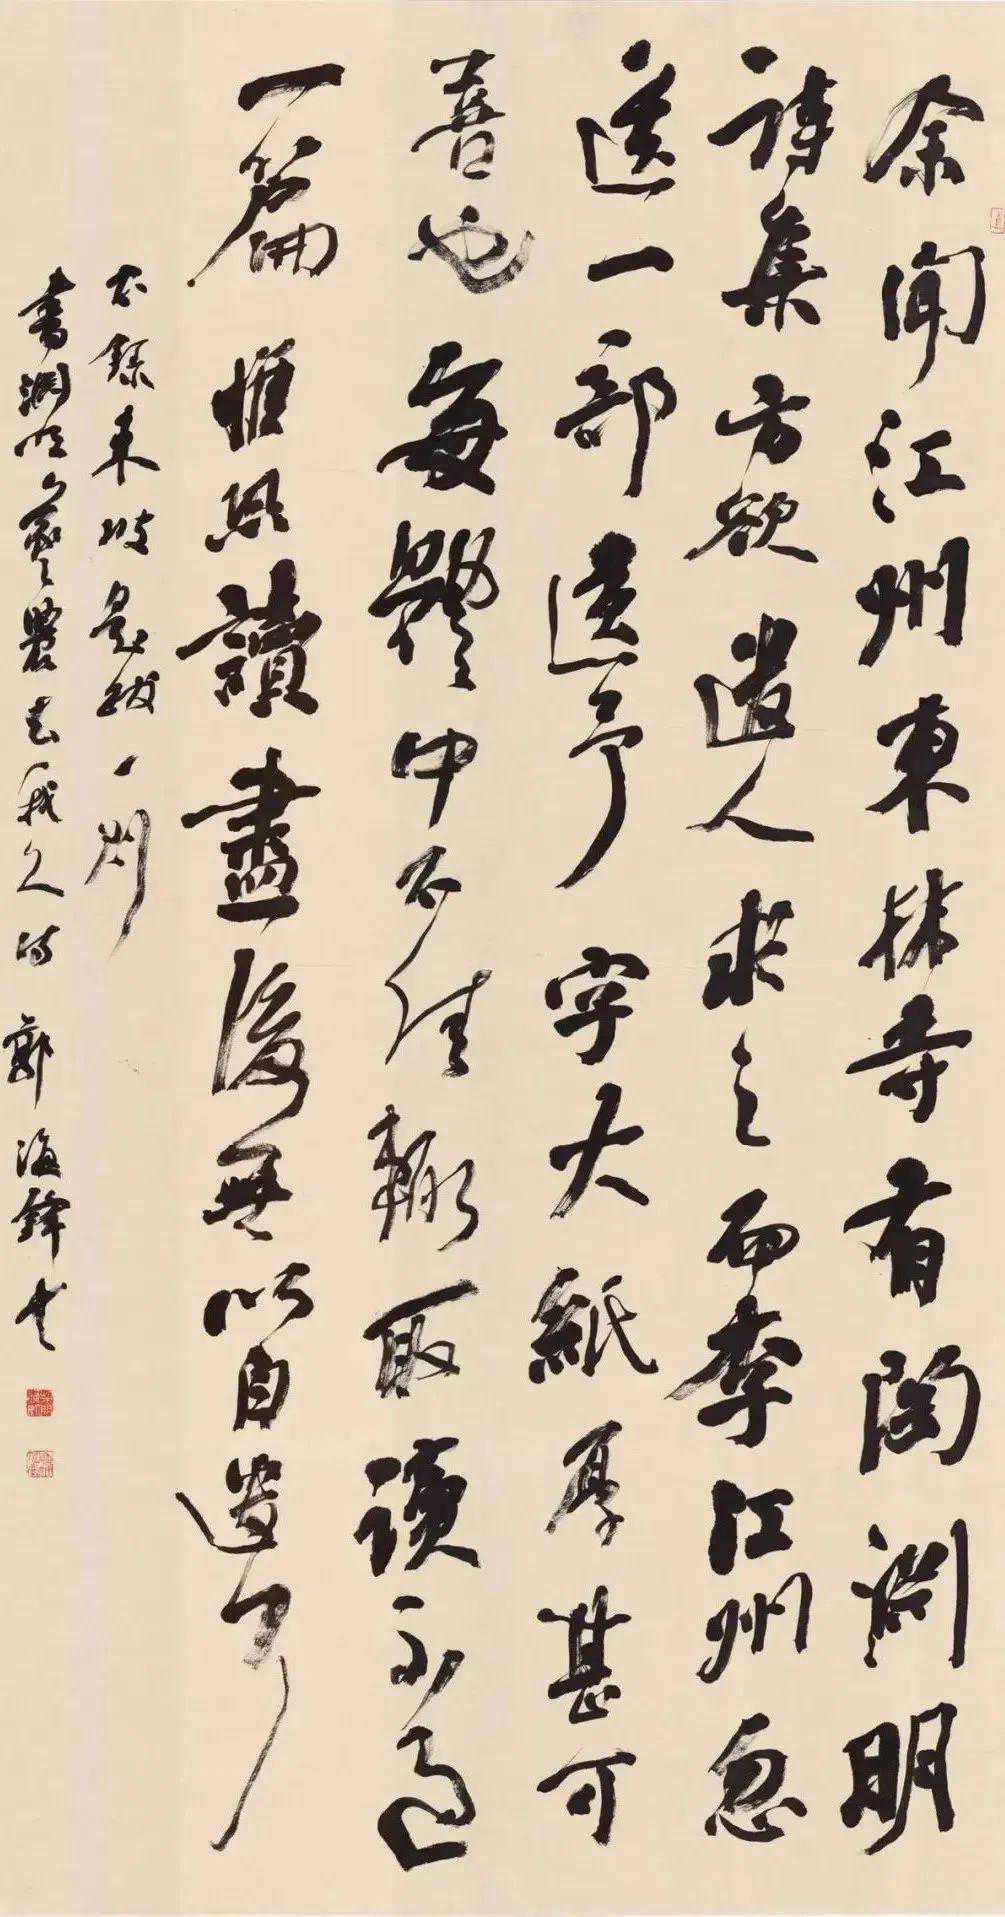 余聞江州東林寺有陶淵明
詩集方欲遣人求之而李江州忽
送一部遺予字大紙厚甚可
喜也每體中不佳輒取讀不過
一篇惟恐讀盡後無以自遣耳
右錄東坡題跋一則
書淵明羲農去我久詩 郭海鋒書